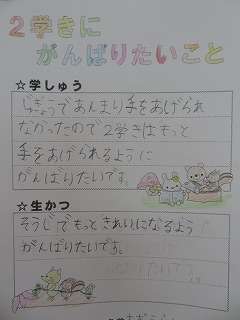 2学きに
がんばりたいこと
☆学しゅう
じゅぎょうであんまり手をあげられ
なかったので2学きはもっと
手をあげられるように
がんばりたいです。
☆生かつ
そうじでもっときれいになるよう
がんばりたいです。